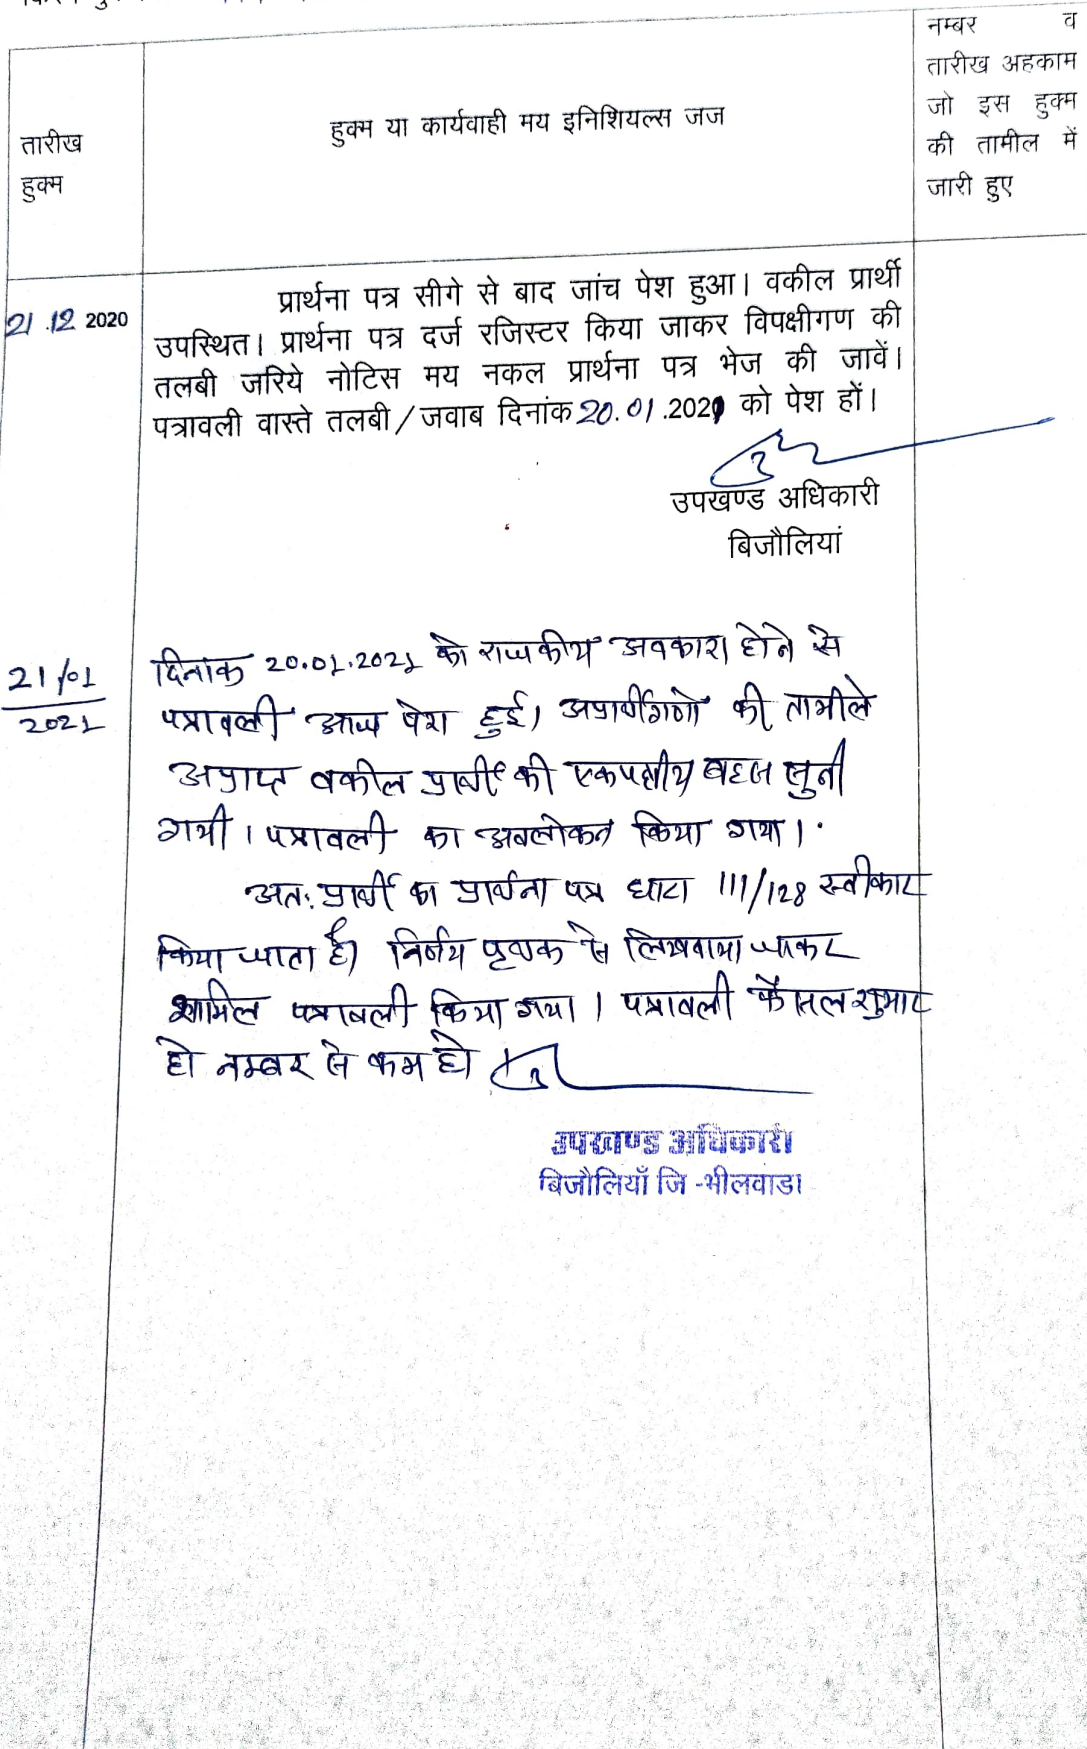 तारीख
हुक्म
हुक्म या कार्यवाही मय इनिशियल्स जज
नम्बर व
तारीख अहकाम
जो इस हुक्म
की तामील में
जारी हुए
21.12.2020
प्रार्थना पत्र सीगे से बाद जांच पेश हुआ। वकील प्रार्थी
उपस्थित। प्रार्थना पत्र दर्ज रजिस्टर किया जाकर विपक्षीगण की
तलबी जरिये नोटिस मय नकल प्रार्थना पत्र भेज की जावें।
पत्रावली वास्ते तलबी/जवाब दिनांक 20.01.2021 को पेश हों।
उपखण्ड अधिकारी
बिजौलियां
21/01
2021
दिनांक 20.01.2021 को राजकीय अवकाश होने से
पत्रावली आज पेश हुई। अप्रार्थीगणों की तामीले
अप्राप्त वकील प्रार्थी की एकपक्षीय बहस सुनी
गयी। पत्रावली का अवलोकन किया गया।
अतः प्रार्थी का प्रार्थना पत्र धारा 111/128 स्वीकार
किया जाता है। निर्णय पृथक से लिखवाया जाकर
शामिल पत्रावली किया गया। पत्रावली फैसल शुमार
हो नम्बर से कम हो
उपखण्ड अधिकारी
बिजौलियाँ जि -भीलवाडा